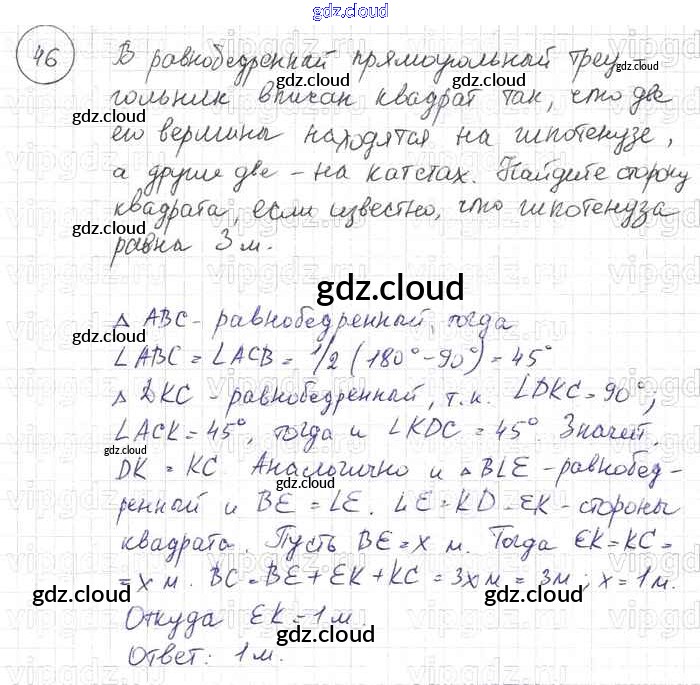 gdz.cloud
46 В равнобедренный прямоугольный треу-
гольник вписан квадрат так, что две
его вершины находятся на гипотенузе,
а другие две - на катетах. Найдите сторону
квадрата, если известно, что гипотенуза
равна 3 м.
gdz.cloud
△ ABC - равнобедренный, тогда
∠ABC = ∠ACB = 1/2 (180° - 90°) = 45°
△ DKC - равнобедренный, т.к. ∠DKC = 90°,
∠ACK = 45°, тогда и ∠KDC = 45°. Значит,
DK = KC. Аналогично и △ BLE - равнобед-
ренный и BE = LE. LE = KD = EK - стороны
квадрата. Пусть BE = x м. Тогда EK = KC =
= x м. BC = BE + EK + KC = 3x м = 3м; x = 1м.
Откуда EK = 1 м.
Ответ: 1 м.